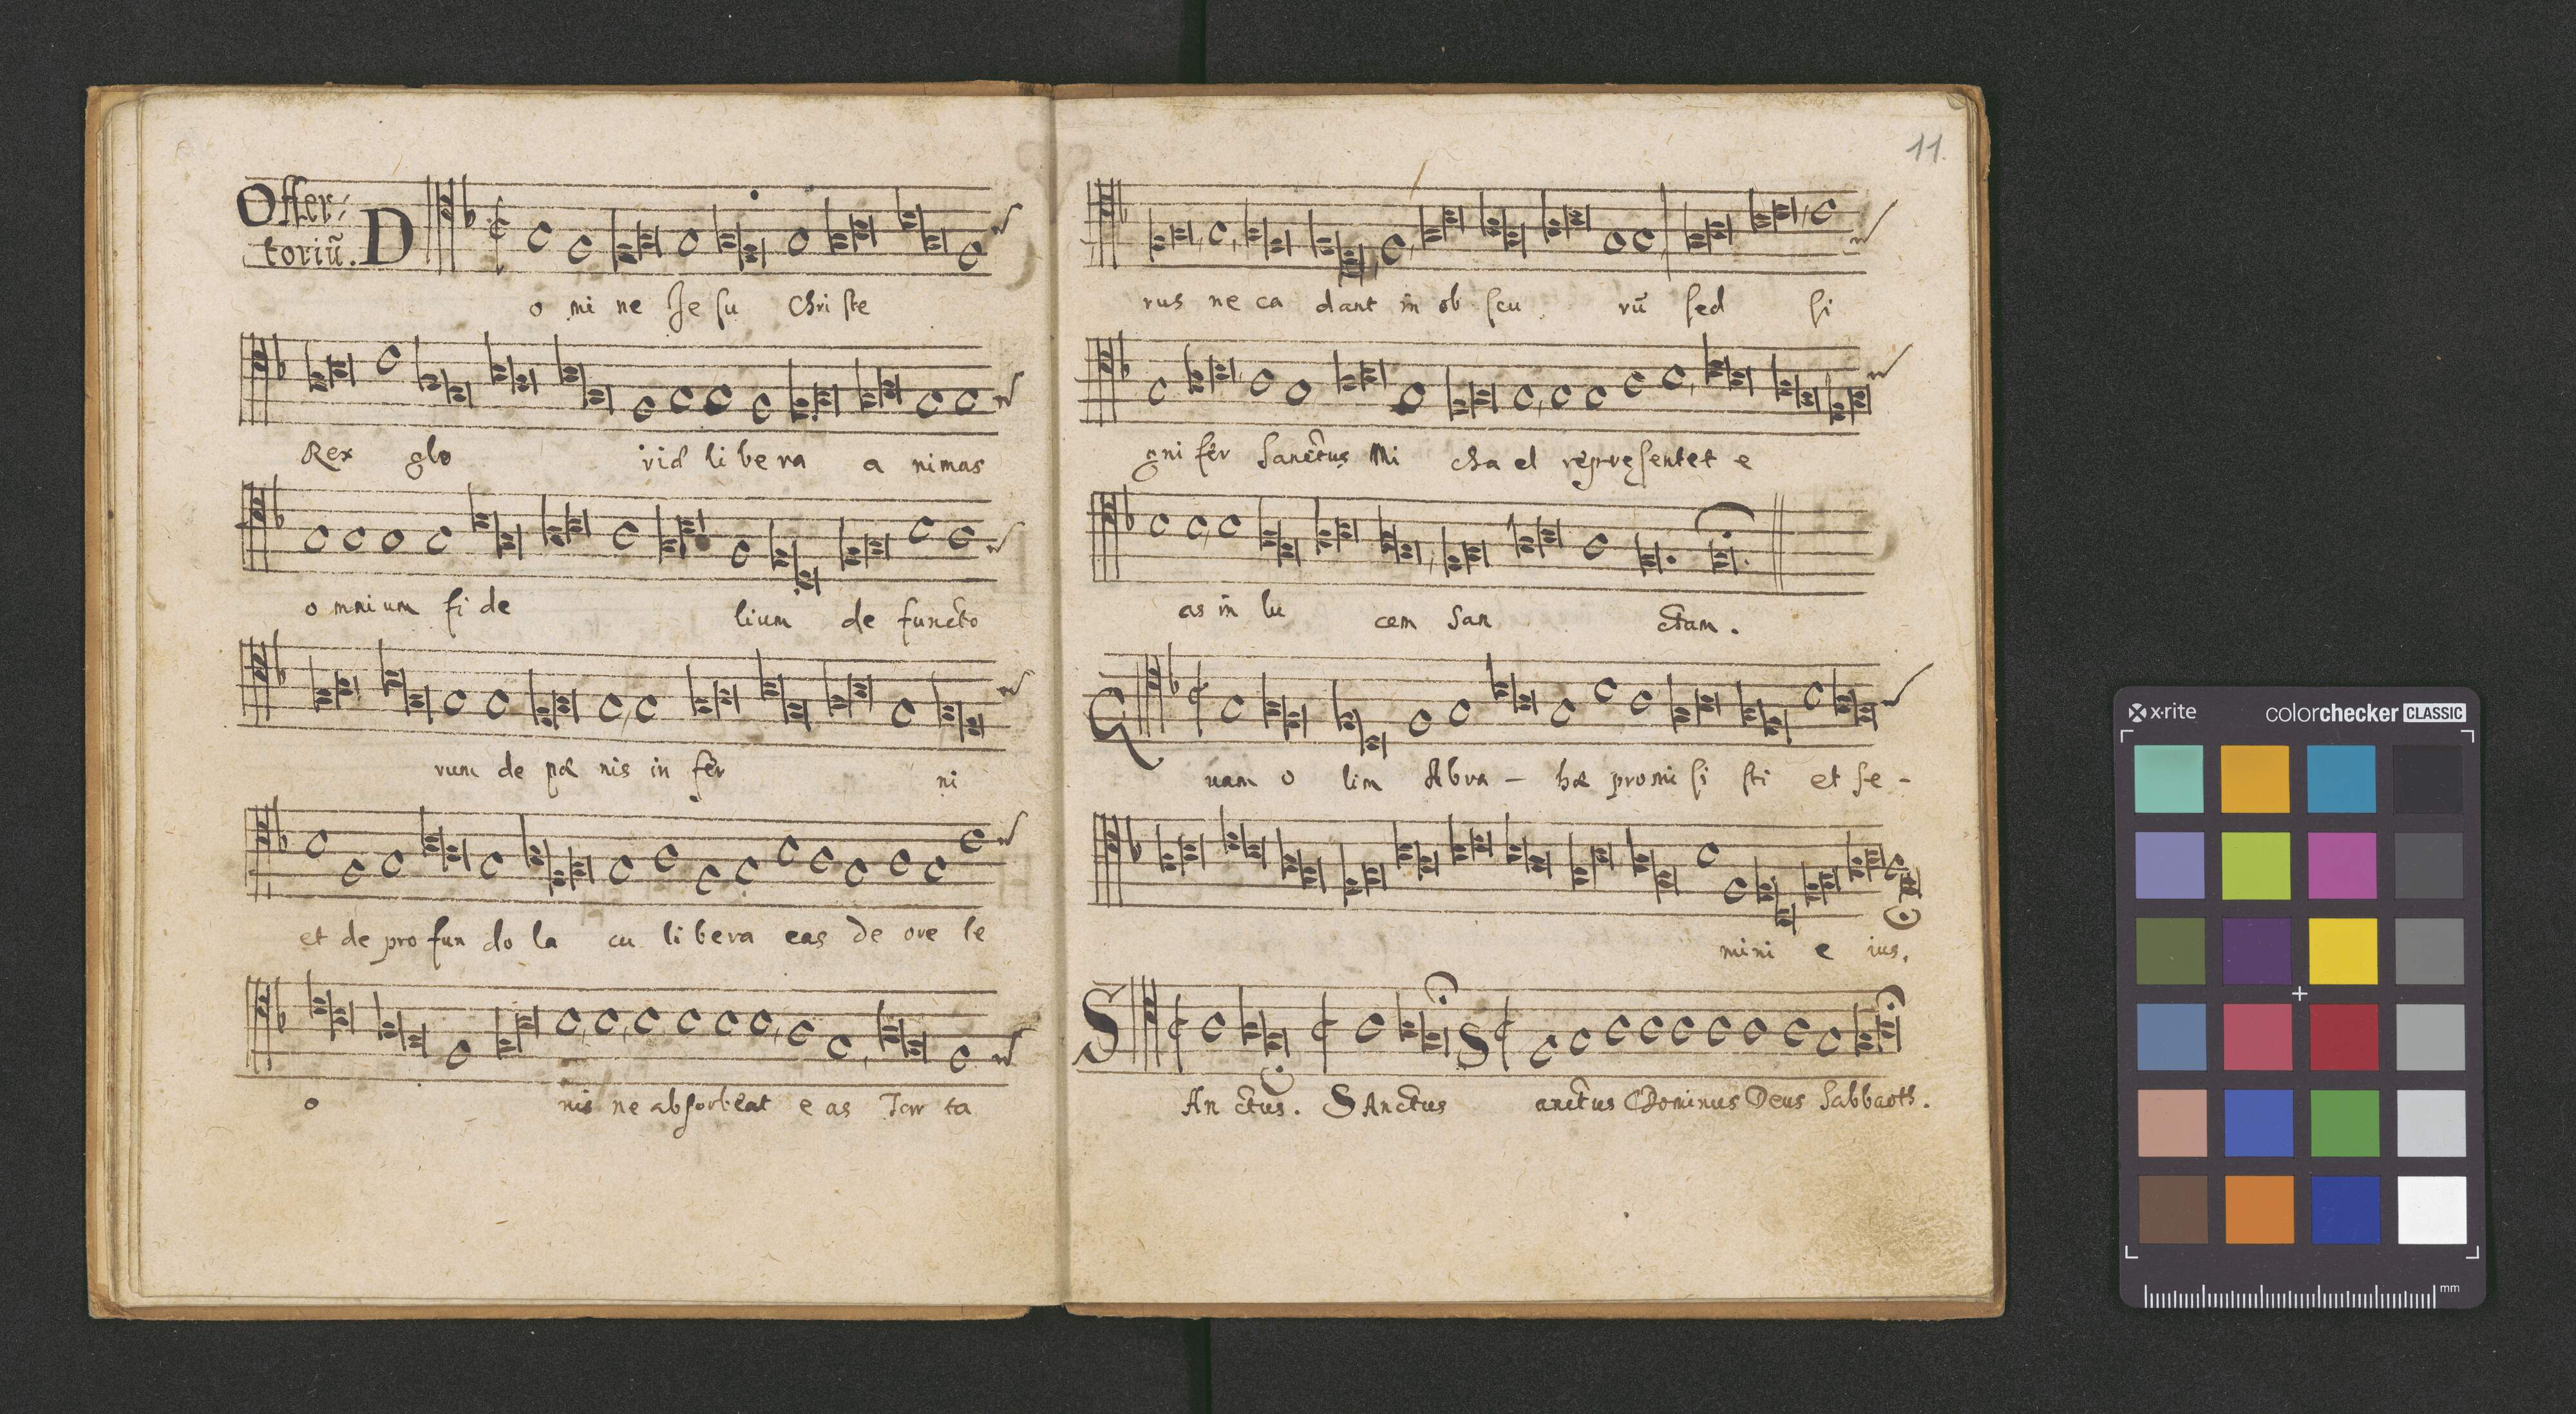 Offer-
toriũ. D
o mi ne Je su Chri ste
Rex glo riæ li be ra a nimas
o mni um fi de lium de functo
rum de pœ nis in fer ni
et de pro fun do la cu li bera eas de ore le
o nis ne absorbeat e as Tar ta
11.
rus ne ca dant in ob scu rũ sed si
gni fer Sanctus Mi cha el repręsentet e
as in lu cem San ctam.
Q uam o lim Abra - hæ promi si sti et se -
mini e ius.
S An ctus. SAnctus S anctus Dominus Deus Sabbaoth.
x·rite colorchecker CLASSIC
mm